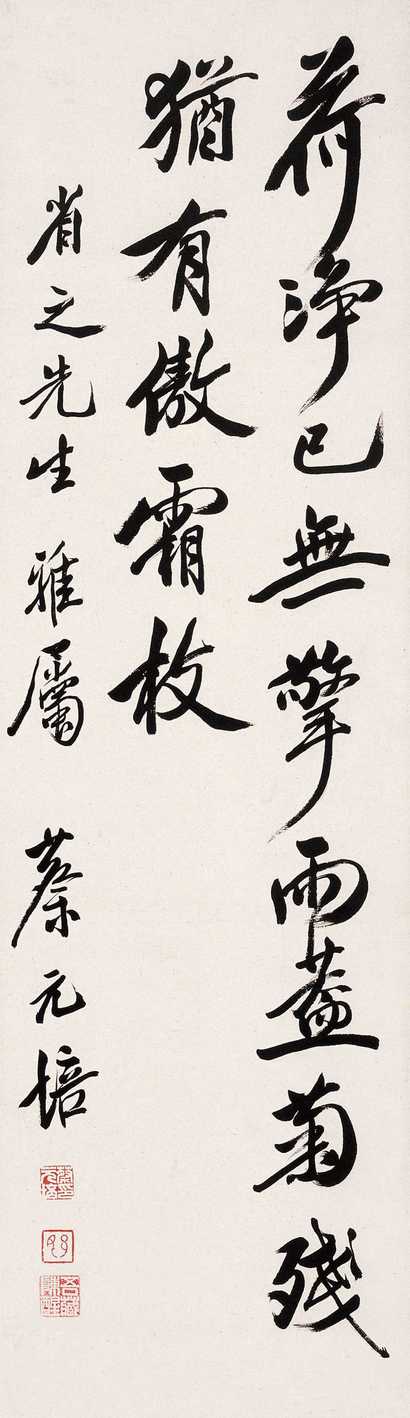 荷淨已無擎雨蓋菊殘
猶有傲霜枝
省之先生雅屬
蔡元培